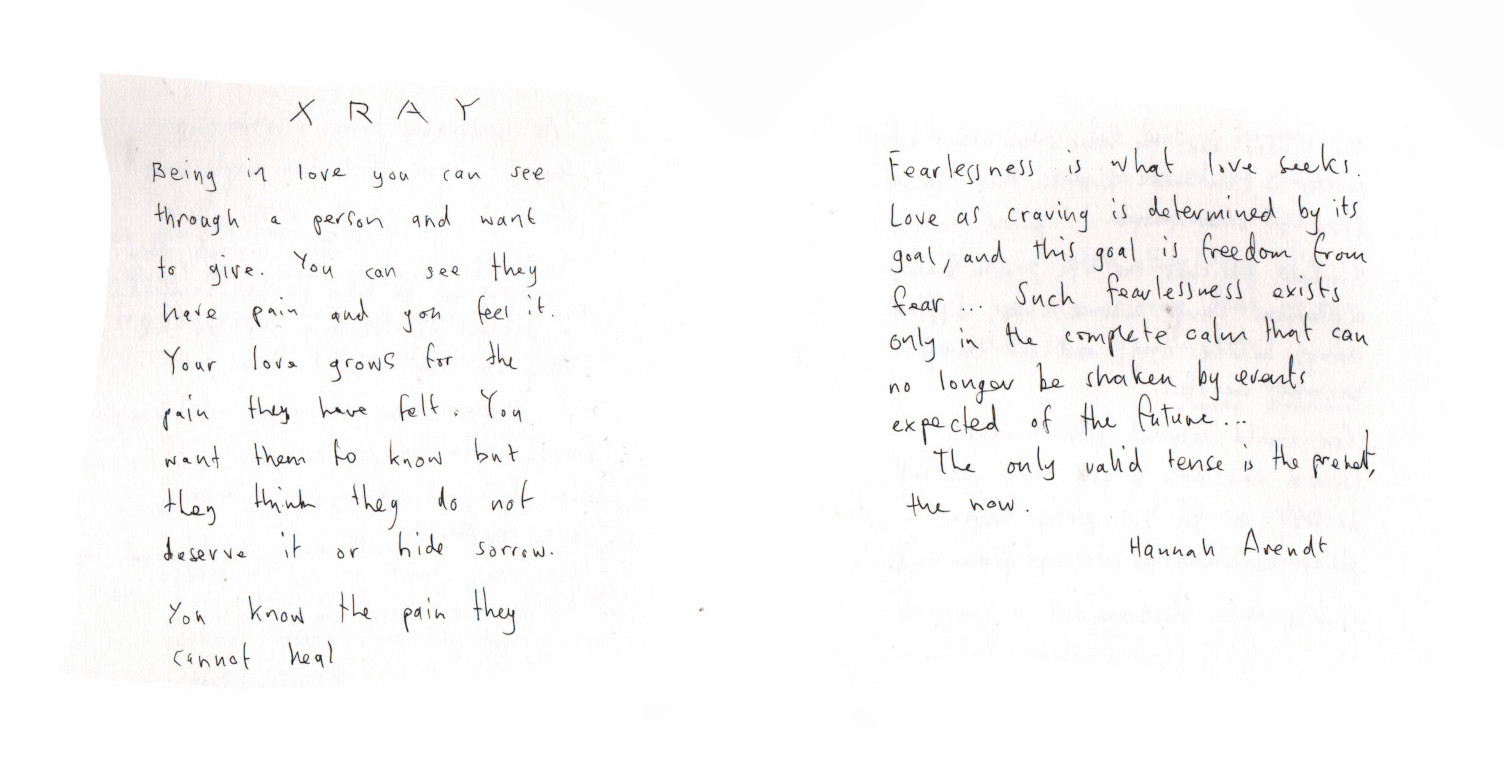 X RAY
Being in love you can see
through a person and want
to give. You can see they
have pain and you feel it.
Your love grows for the
pain they have felt. You
want them to know but
they think they do not
deserve it or hide sorrow.
You know the pain they
cannot heal
Fearlessness is what love seeks.
Love as craving is determined by its
goal, and this goal is freedom from
fear... Such fearlessness exists
only in the complete calm that can
no longer be shaken by events
expected of the future...
The only valid tense is the present,
the now.
Hannah Arendt